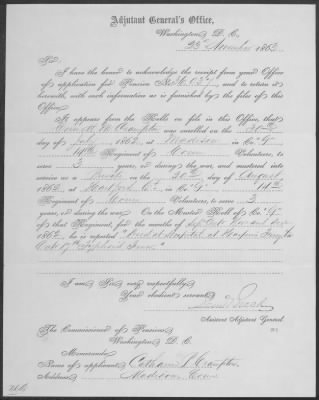 Adjutant General's Office,
Washington, D. C.
23d November 1863
Sir:
I have the honor to acknowledge the receipt from your Office
of application for Pension No. and to return it
herewith, with such information as is furnished by the files of this
Office.
It appears from the Rolls on file in this Office, that
M. Crampton was enrolled on the 30th
day of July 1862, at Madison in Co. "G"
14th Regiment of Conn Volunteers, to
serve 3 years, or during the war, and mustered into
service as a Private on the 20th day of August
1862, at Hartford Ct, in Co. "G" 14th
Regiment of Conn Volunteers, to serve 3
years, or during the war. On the Muster Roll of Co. "G"
of that Regiment, for the months of Sept Oct
1862, he is reported "Died at Hospital at Harpers Ferry Va
Oct 17th Typhoid Fever."
I am, Sir, very respectfully,
Your obedient servant,
Assistant Adjutant General.
The Commissioner of Pensions,
Washington, D. C.
Memoranda:
Name of applicant, S. Crampton
Address, Madison Conn